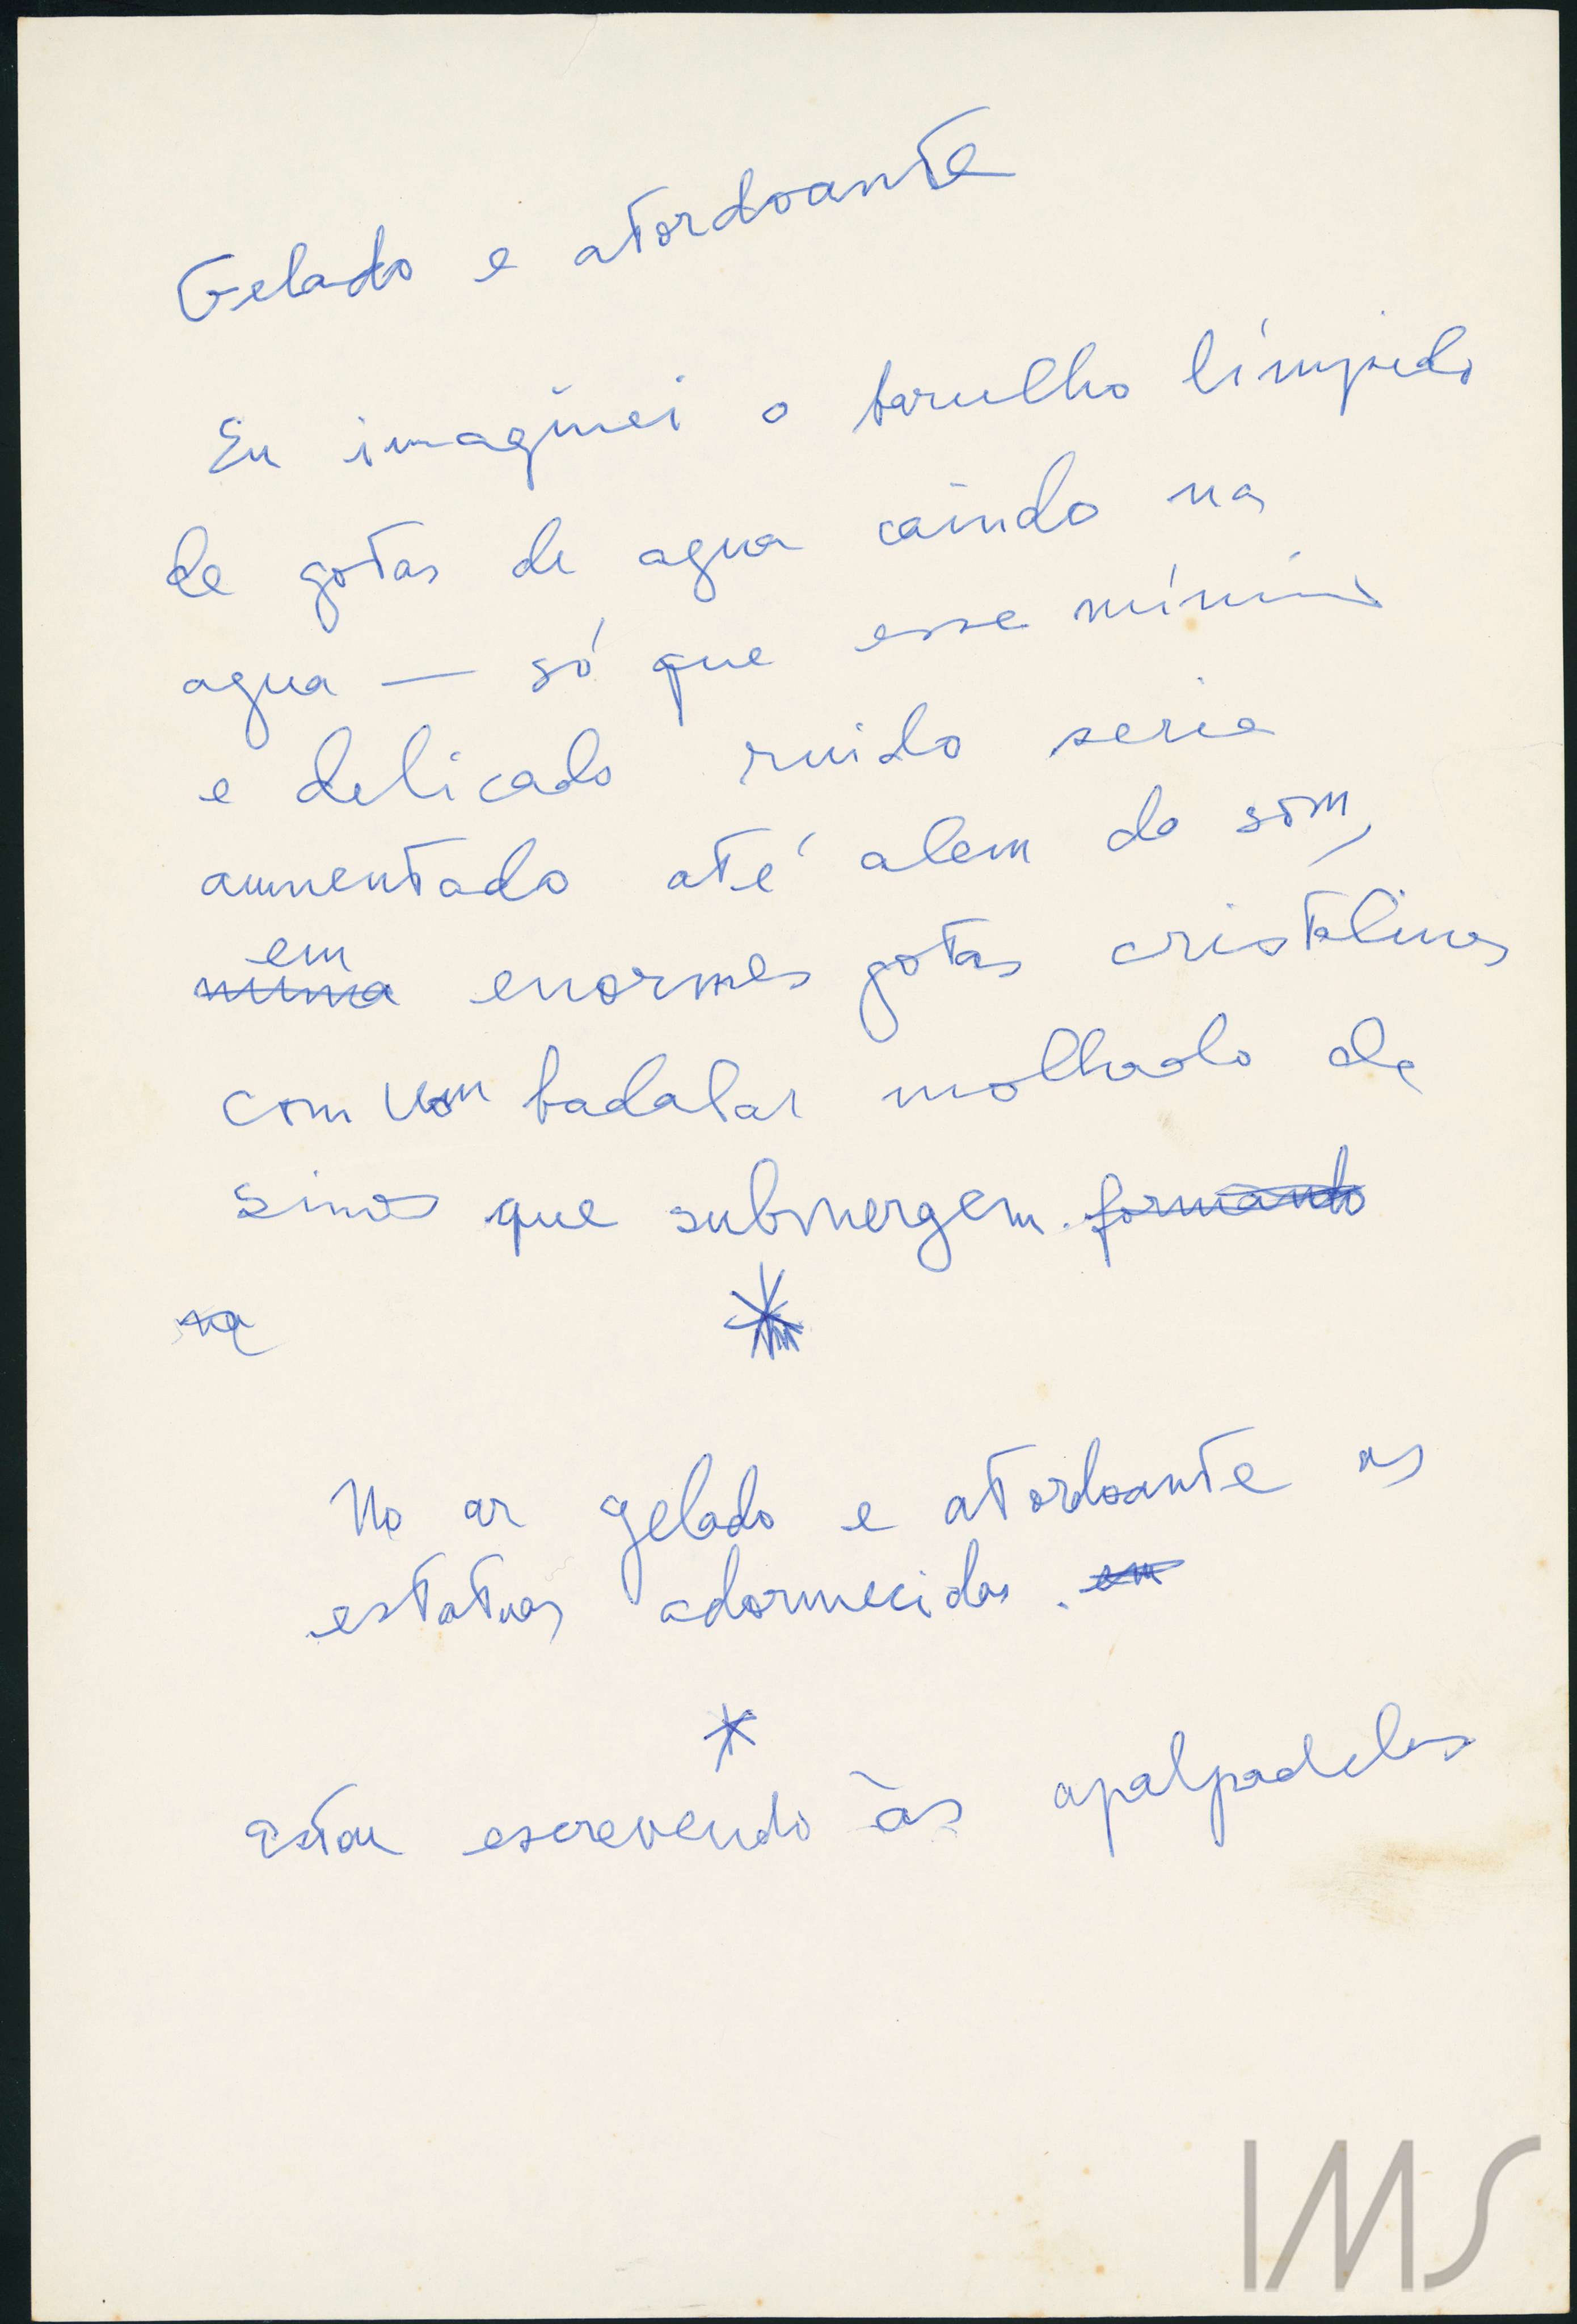 Gelado e atordoante
Eu imaginei o barulho límpido
de gotas de agua caindo na
agua — só que esse mínimo
e delicado ruido seria
aumentado até alem do som,
em
numa enormes gotas cristalinas
com um badalar molhado de
sinos que submergem. formando
na
*
No ar gelado e atordoante as
estatuas adormecidas. em
*
Estou escrevendo às apalpadelas
IMS